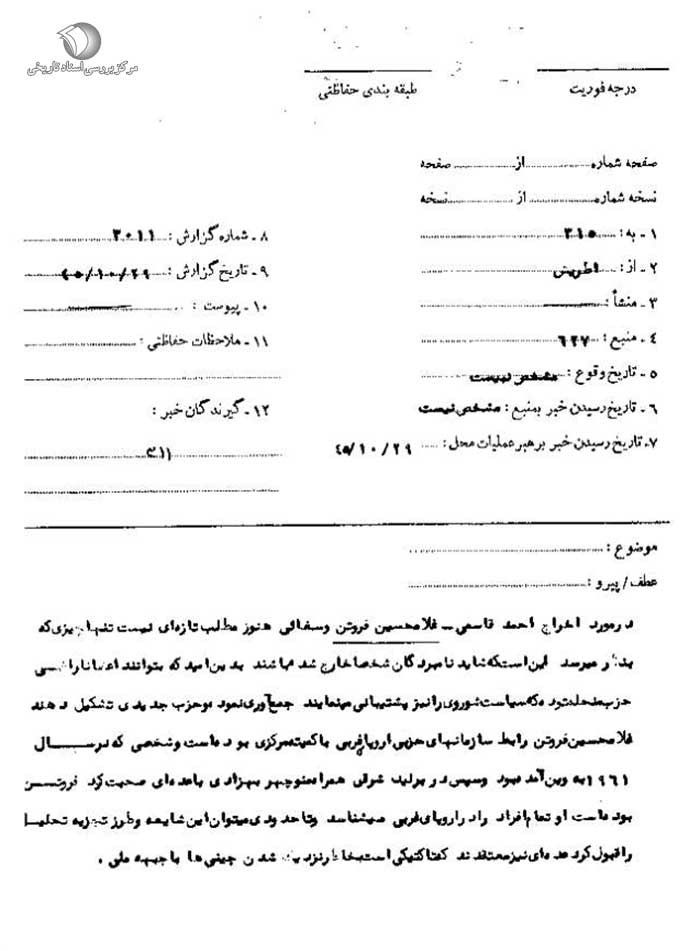 مرکز بررسی اسناد تاریخی
درجه فوریت
طبقه بندی حفاظتی
صفحه شماره.................از.................صفحه
نسخه شماره.................از.................نسخه
۱ - به : ۳۱۵
۲ - از : اطریش
۳ - منشأ :
۴ - منبع : ۶۲۷
۵ - تاریخ وقوع : مشخص نیست
۶ - تاریخ رسیدن خبر بمنبع : مشخص نیست
۷ - تاریخ رسیدن خبر برهبر عملیات محل : ۴۵/۱۰/۲۹
۸ - شماره گزارش : ۲۰۱۱
۹ - تاریخ گزارش : ۴۵/۱۰/۲۹
۱۰ - پیوست :
۱۱ - ملاحظات حفاظتی :
۱۲ - گیرندگان خبر :
موضوع :
عطف / پیرو :
درمورد اخراج احمد قاسمی - غلامحسین فروتن وسغائی هنوز مطلب تازه‌ای نیست تنها چیزی که
بنظر میرسد این استکه شاید نامبردگان شخصا خارج شده باشند بدین امید که بتوانند اعضا ناراضی
حزب منحله توده که سیاست شوروی را نیز پشتیبانی مینمایند جمع‌آوری نموده و حزب جدیدی تشکیل دهند
غلامحسین فروتن رابط سازمانهای حزبی اروپای غربی با کمیته مرکزی بوده است و شخصی که در سال
۱۹۶۱ به وین آمده بود وسپس در برلین شرقی همراه منوچهر بهزادی با عده‌ای صحبت کرد فروتن
بوده است او تمام افراد را در اروپای غربی میشناسد و تا حدودی میتوان این شایعه و طرز تجزیه تحلیل
را قبول کرد عده‌ای نیز معتقدند که تاکتیکی است بخاطر نزدیک شدن چینی ها با جبهه ملی .